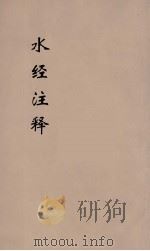 水经注释
mtoou.info